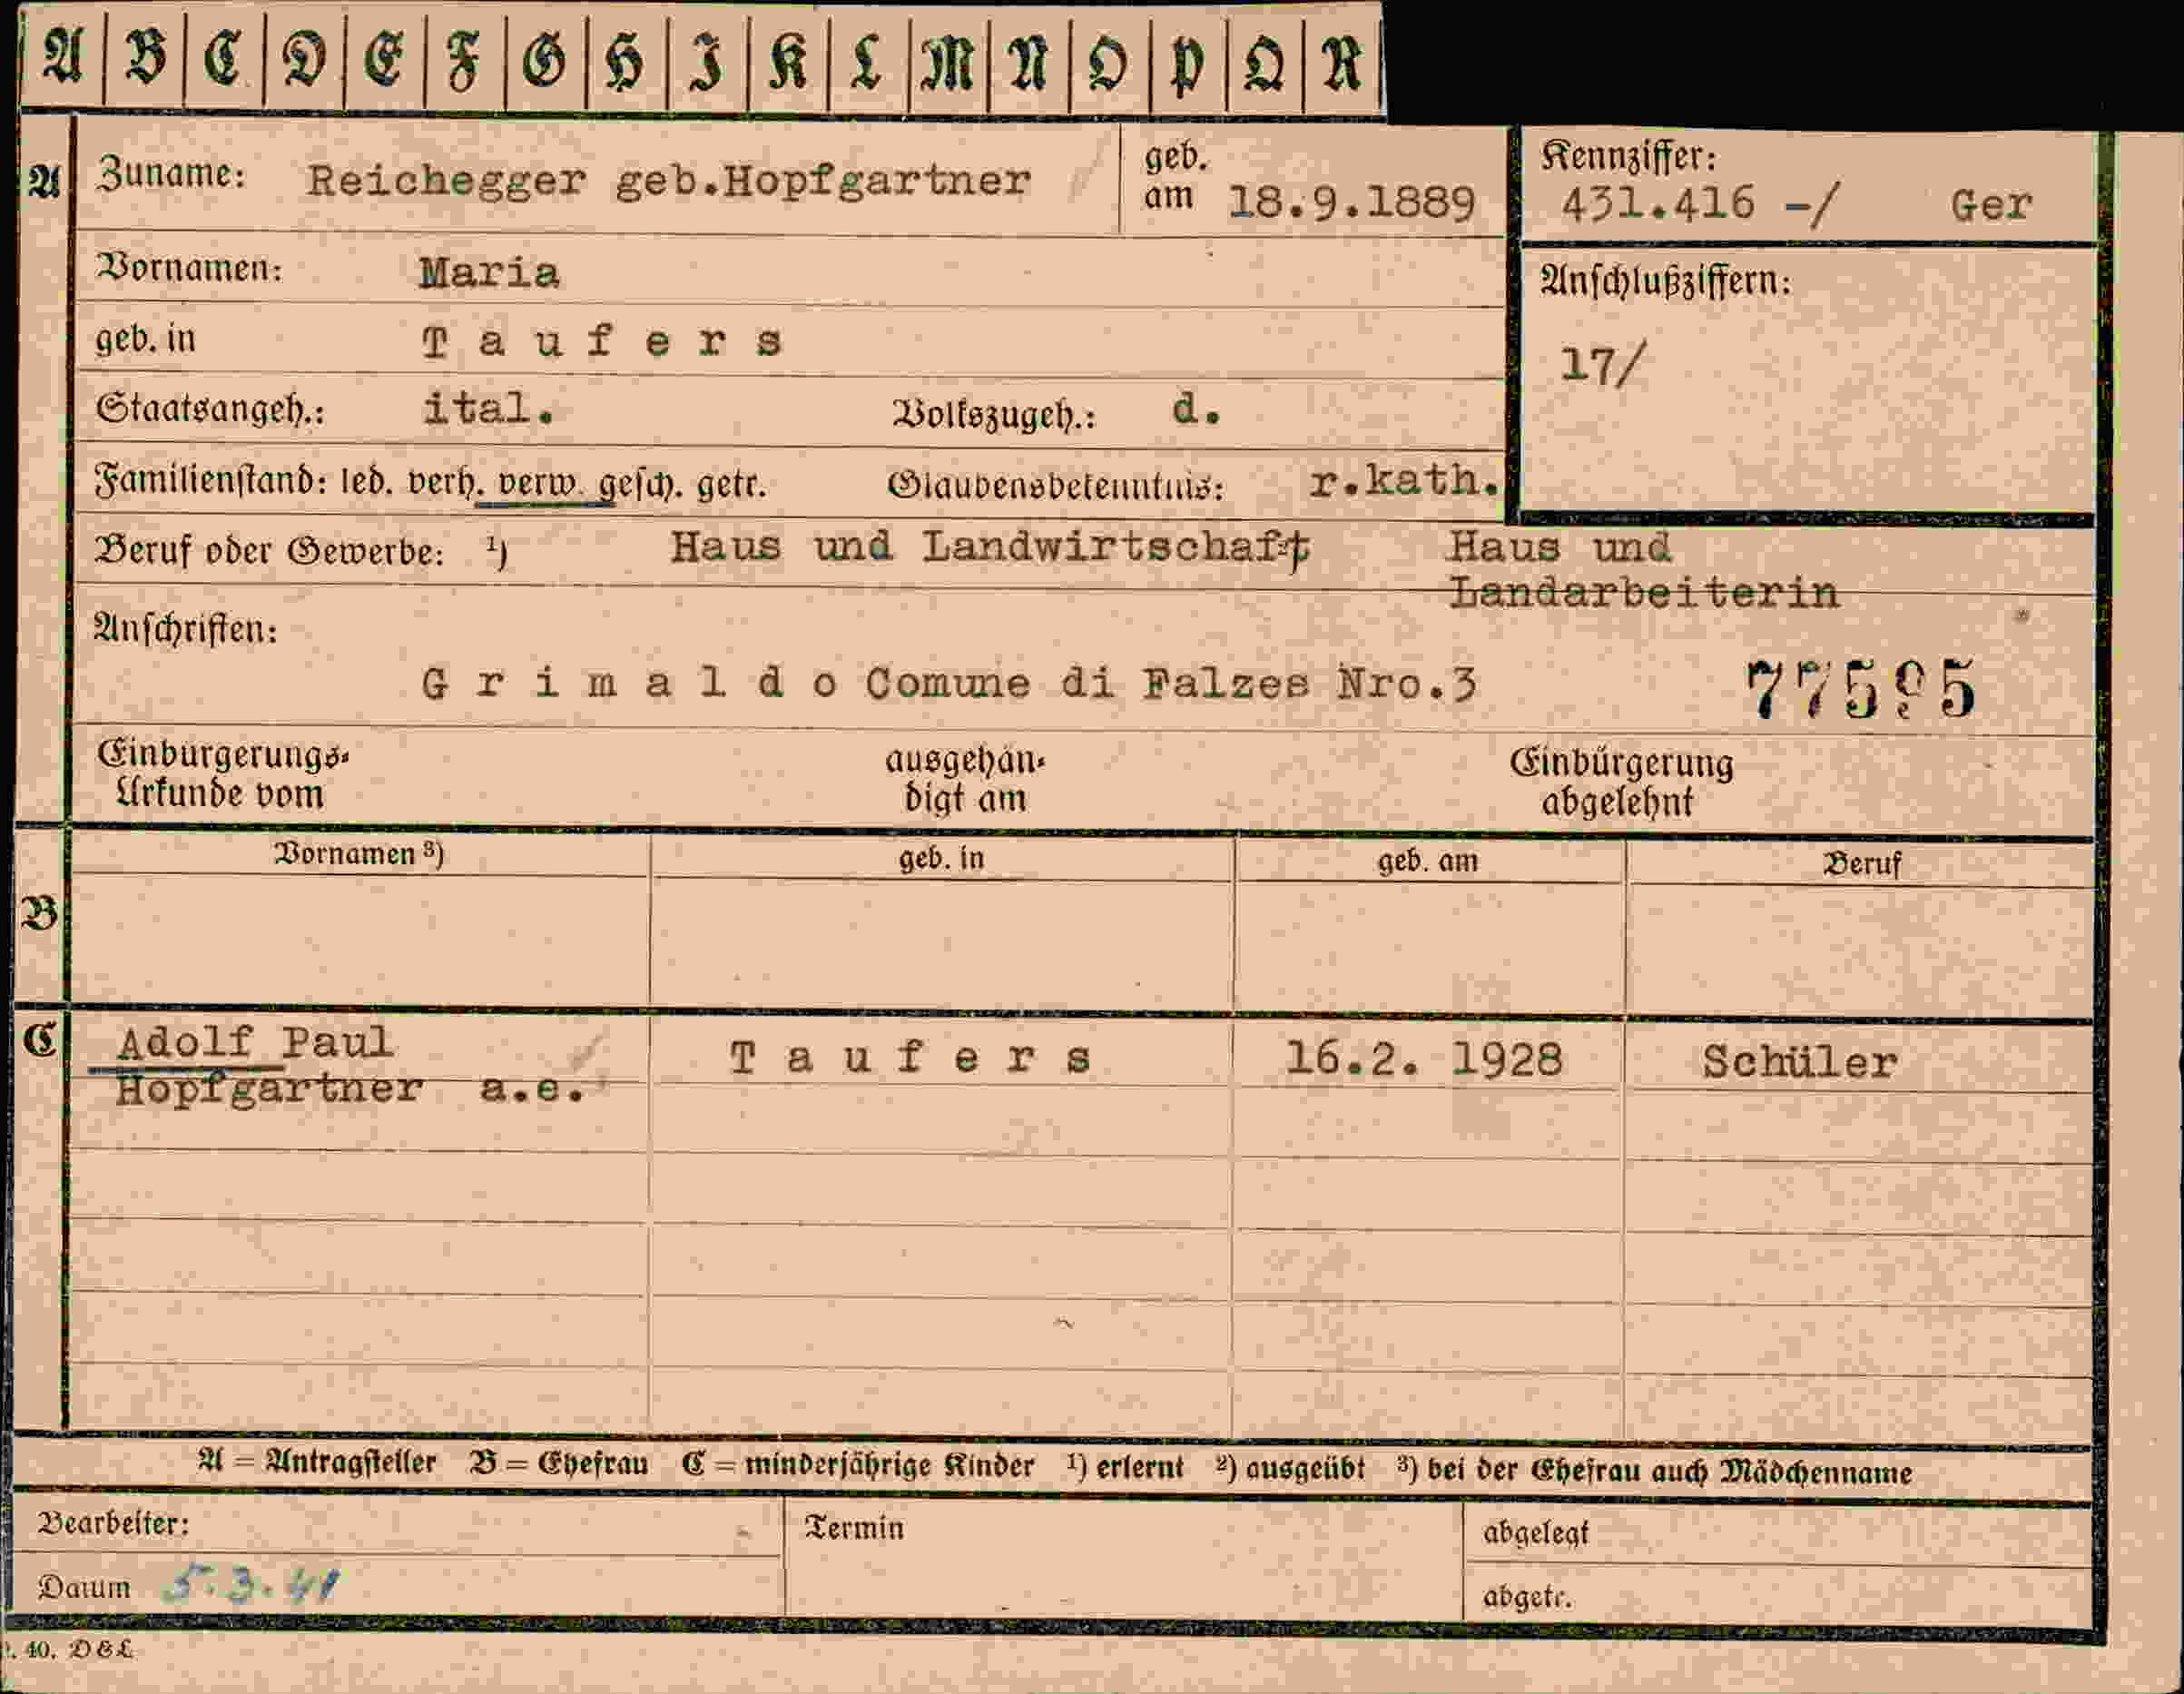 A B C D E F G H I K L M N O P Q R
A Zuname: Reichegger geb.Hopfgartner geb. am 18.9.1889 Kennziffer: 431.416 -/ Ger
Vornamen: Maria Anschlußziffern:
geb. in Taufers 17/
Staatsangeh.: ital. Volkszugeh.: d.
Familienstand: led. verh. verw. gesch. getr. Glaubensbekenntnis: r.kath.
Beruf oder Gewerbe: ¹) Haus und Landwirtschaft Haus und
Landarbeiterin
Anschriften:
Grimaldo Comune di Falzes Nro.3 77595
Einbürgerungs- ausgehän- Einbürgerung
Urkunde vom digt am abgelehnt
Vornamen ³) geb. in geb. am Beruf
B
C Adolf Paul Taufers 16.2. 1928 Schüler
Hopfgartner a.e.
A = Antragsteller B = Ehefrau C = minderjährige Kinder ¹) erlernt ²) ausgeübt ³) bei der Ehefrau auch Mädchenname
Bearbeiter: Termin abgelegt
Datum 5.3.41 abgetr.
40. D&L